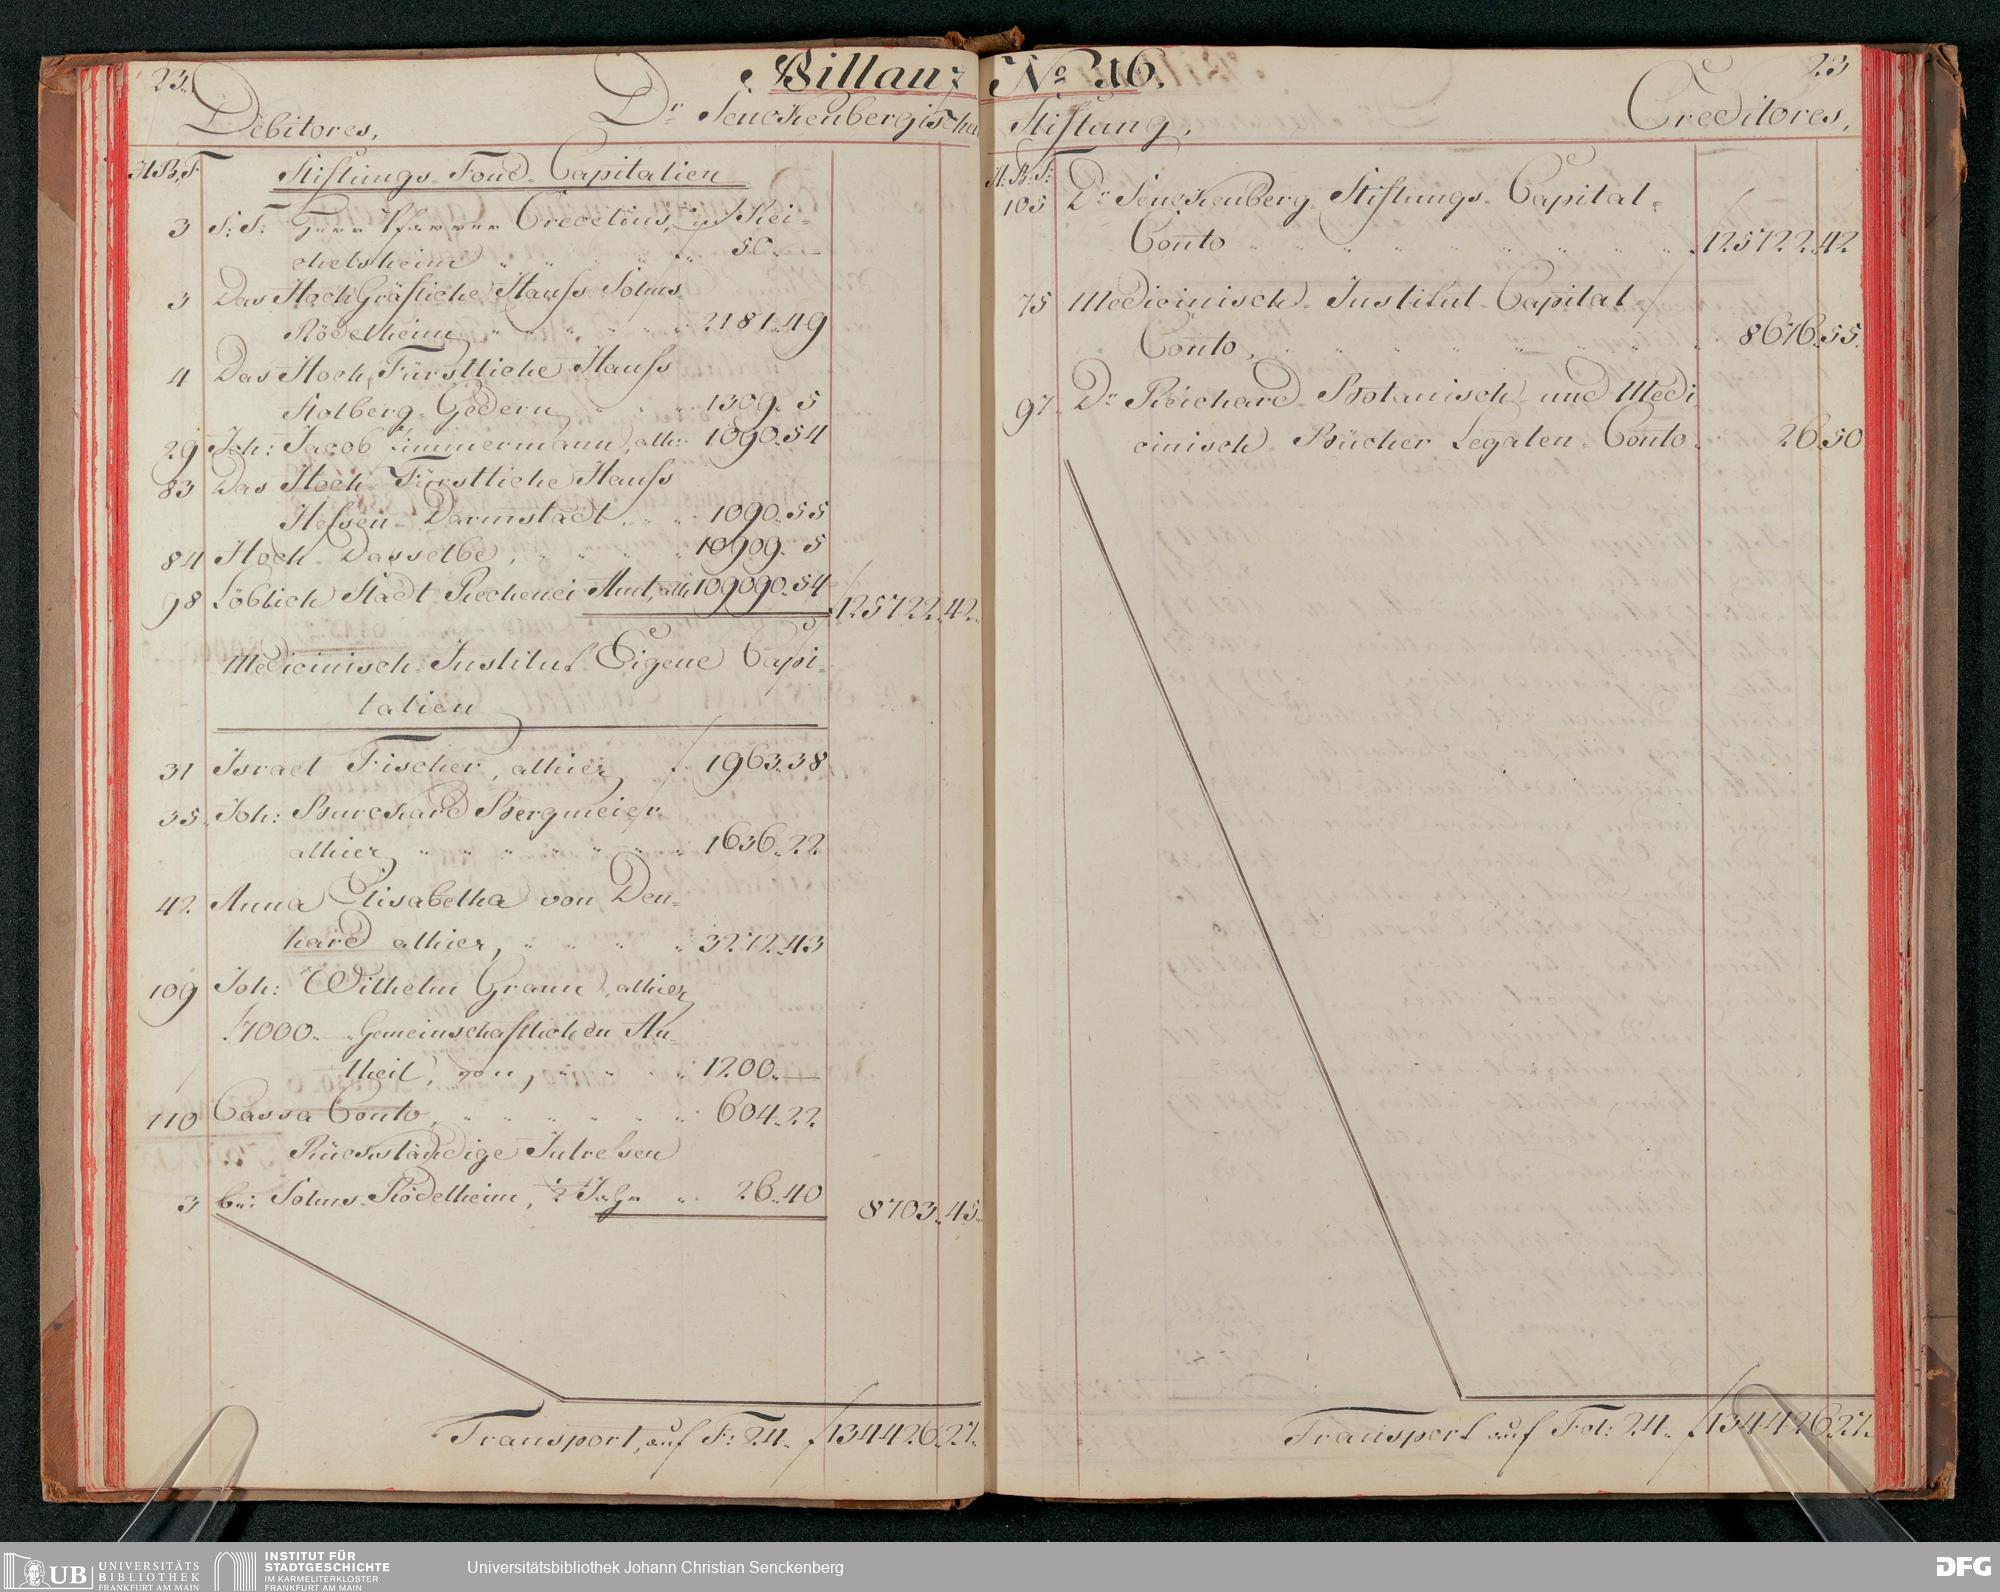 23.
Billanz
Debitores,
Dr Senckenbergischen
H.B.F.
Stiftungs Fond Capitalien
3 S: T: Herr Pfarrer Crecelius, in Rei-
chelsheim " " " " f. 50. —
3 Das HochGräfliche Hauß Solms
Rödelheim " " " " " " 2181. 49
4 Das Hoch Fürstliche Hauß
Stolberg Gedern " " " 1309. 5
29 Joh: Jacob Zimmermann, alh: 1090. 54
83 Das Hoch Fürstliche Hauß
Heßen Darmstadt " " 1090. 55
84 Hoch Dasselbe, " " " " 10909. 5
98 Löblich Stadt Rechenei Amt, alh 109090. 54
f 125722. 42.
Medicinisch Institut Eigene Capi-
talien
31 Israel Fischer, alhier f. 1963. 38
35. Joh: Burckard Bergmeier
alhier " " " " " " " 1636. 22
42 Anna Elisabetha von Den-
hard alhier, " " " " 3272. 43
109 Joh: Wilhelm Gramm, alhier
f 7000. — Gemeinschafttlichen An-
theil, von, " " " " 1200. —
110 Cassa Conto, " " " " " " 604. 22
Rückständige Intreßen
3 bei Solms Rödelheim, ½ Jahr " 26. 40
8703. 45.
Transport, auf F: 24. f 134426. 27.
No 16.
23
Stiftung,
Creditores,
H: B: F:
105 Dr Senckenberg Stiftungs Capital-
Conto " " " " " " " " f 125722. 42
75 Medicinisch Institut Capital-
Conto, " " " " " " " 8676. 55.
97. Dr Reichard Botanisch und Medi
cinisch Bücher Legaten Conto. " 26. 50
Transport auf Fol: 24. f 134426. 27.
UB UNIVERSITÄTS
BIBLIOTHEK
FRANKFURT AM MAIN
INSTITUT FÜR
STADTGESCHICHTE
IM KARMELITERKLOSTER
FRANKFURT AM MAIN
Universitätsbibliothek Johann Christian Senckenberg
DFG